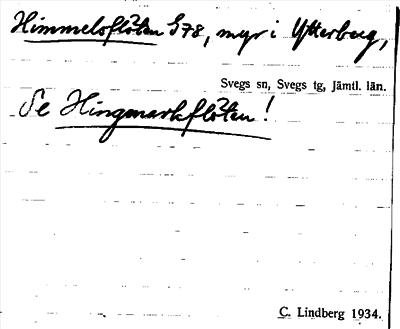 Himmelsflöten S78, myr i Ytterberg,
Svegs sn, Svegs tg, Jämtl. län.
Se Hingmarkflöten!
C. Lindberg 1934.